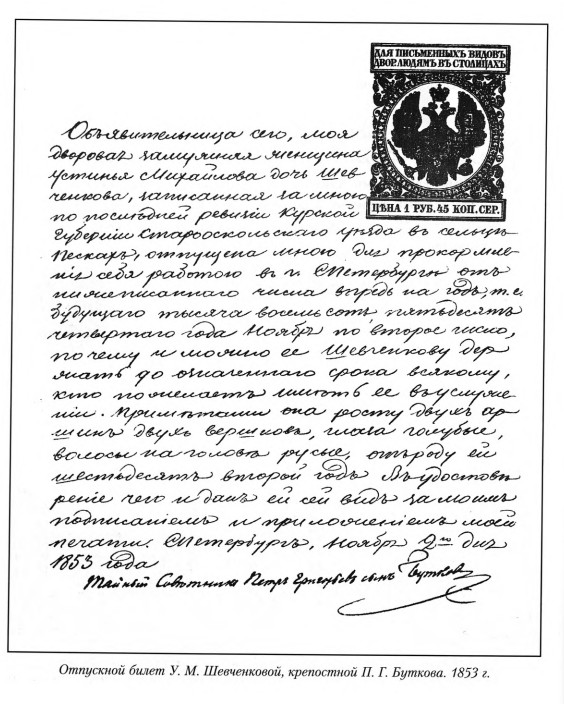 ДЛЯ ПИСЬМЕННЫХЪ ВИДОВЪ
ДВОР.ЛЮДЯМЪ ВЪ СТОЛИЦАХЪ
ЦѢНА 1 РУБ. 45 КОП. СЕР.
Объявительница сего, моя
дворовая замужняя женщина
Устинья Михайлова дочь Шев-
ченкова, записанная за мною
по последней ревизіи Курской
Губерніи Старооскольскаго уѣзда въ сельцѣ
Пескахъ, отпущена мною для прокормле-
нія себя работою въ г. СПетербургѣ отъ
нижеписаннаго числа впредь на годъ, т.е.
будущаго тысяча восемьсотъ пятьдесятъ
четвертаго года Ноября по второе число,
почему и можно ее Шевченкову дер-
жать до означеннаго срока всякому,
кто пожелаетъ имѣть ее въ услуже-
ніи. Примѣтами она росту двухъ ар-
шинъ двухъ вершковъ, глаза голубые,
волосы на головѣ русые, отъ роду ей
шестьдесятъ второй годъ. Въ удостовѣ-
реніе чего и данъ ей сей видъ за моимъ
подписаніемъ и приложеніемъ моей
печати. СПетербургъ, Ноября 2го дня
1853 года
Тайный Совѣтникъ Петръ Григорьевъ сынъ Бутковъ
Отпускной билет У. М. Шевченковой, крепостной П. Г. Буткова. 1853 г.